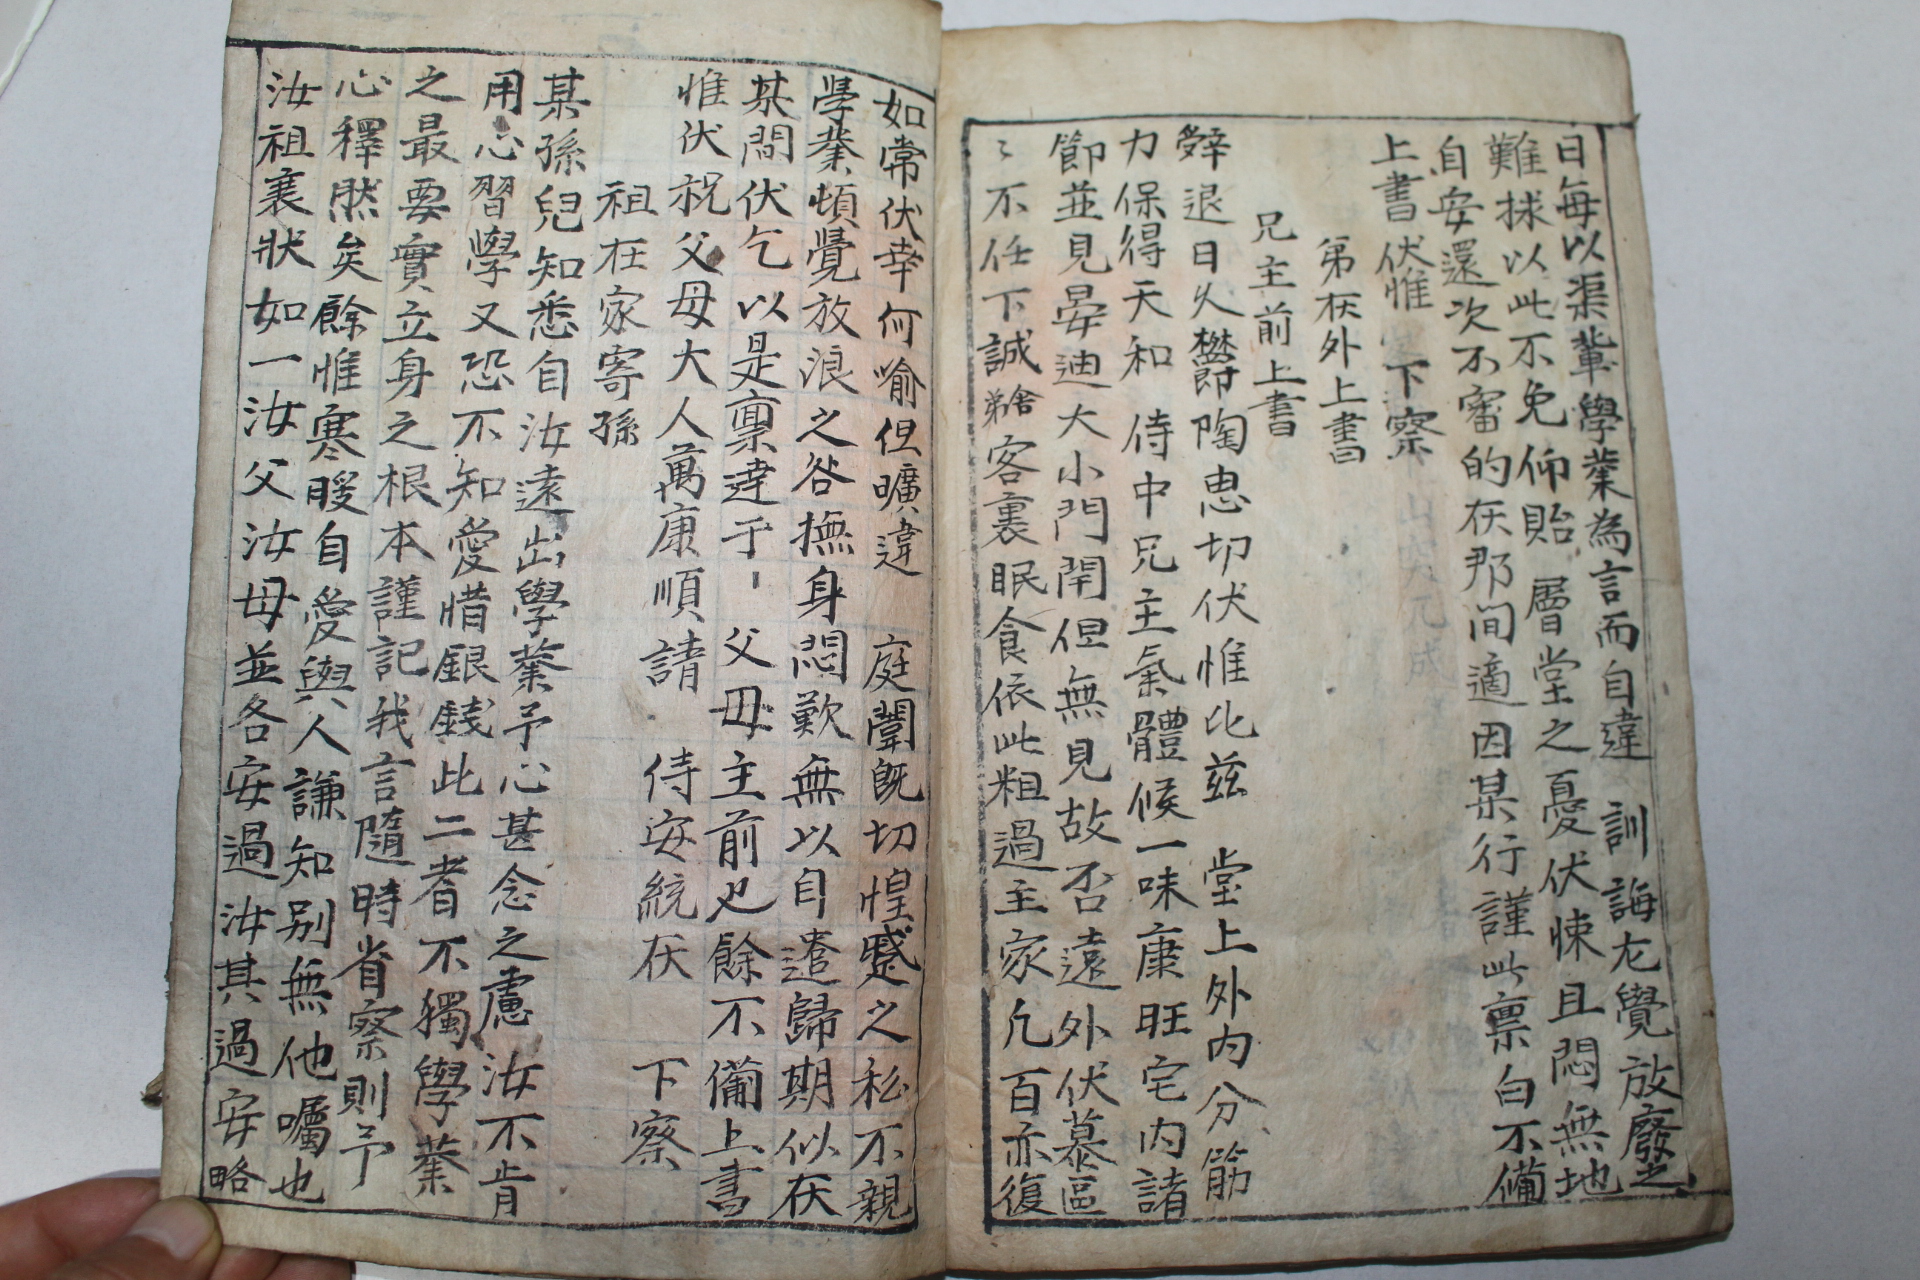 日每以渠輩學業為言而自違　訓誨尤覺放廢之
難捄以此不免仰貽　層堂之憂伏悚且悶無地
自安還次不審的在那間適因某行謹此禀白不備
上書伏惟　下察
弟在外上書
兄主前上書
辤退日久欝陶思切伏惟比玆　堂上外內分節
力保得天和　侍中兄主氣體候一味康旺宅內諸
節並見晏迪大小門閈但無見故否遠外伏慕區
〻不任下誠弟舍客裏眠食依此粗過主家凡百亦復
如常伏幸何喻但曠違　庭闈旣切惶蹙之私不親
學業頓覺放浪之咎撫身悶歎無以自遣歸期似在
某間伏乞以是禀達于　父母主前也餘不備上書
惟伏祝父母大人萬康順請　侍安統在　下察
祖在家寄孫
某孫兒知悉自汝遠出學業予心甚念之慮汝不肯
用心習學又恐不知愛惜銀錢此二者不獨學業
之最要實立身之根本謹記我言隨時省察則予
心釋然矣餘惟寒暖自愛與人謙知別無他囑也
汝祖襄狀如一汝父汝母並各安過汝其過安略